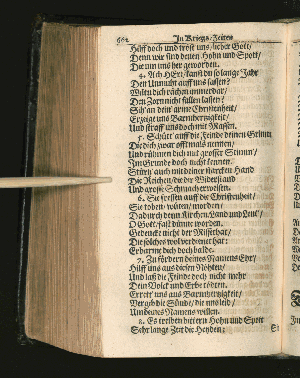 662 In Kriegs-Zeiten
Hilff doch und tröst uns/lieber Gott/
Denn wir sind denen Hohn und Spott/
Die um uns her geworden.
4. Ach HErr/kanst du so lange Jahr
Den Unmuht auff uns fassen?
Wiltu dich rächen immerdar/
Den Zorn nicht fallen lassen?
Sih an dein' arme Christenheit/
Erzeige uns Barmhertzigkeit/
Und straff uns doch mit Massen.
5. Schütt' auff die Feinde deinen Grimm
Die dich zwar offt mals nennen/
Und rühmen dich mit grosser Stimm'/
Im Grunde doch nicht kennen.
Stürtz' auch mit deiner starcken Hand
Die Reichen/die der Widerstand
Und grosse Schmach erweisen.
6. Sie fressen auff die Christenheit/
Sie toben/wüten/morden/
Dadurch denn Kirchen/Land und Leut'/
O Gott/fast dünne worden.
Gedencke nicht der Missethat/
Die solches wol verdienet hat:
Erbarme dich doch balde.
7. Zu fördern deines Namens Ehr'/
Hilff uns aus diesen Nöhten/
Und laß die Feinde doch nicht mehr
Dein Volck und Erbe tödten.
Errett' uns aus Barmhertzigkeit/
Vergib die Sünde/die uns leid/
Um deines Namens willen.
8. Es treiben bittern Hohn und Spott
Sehr lange Zeit die Heyden: